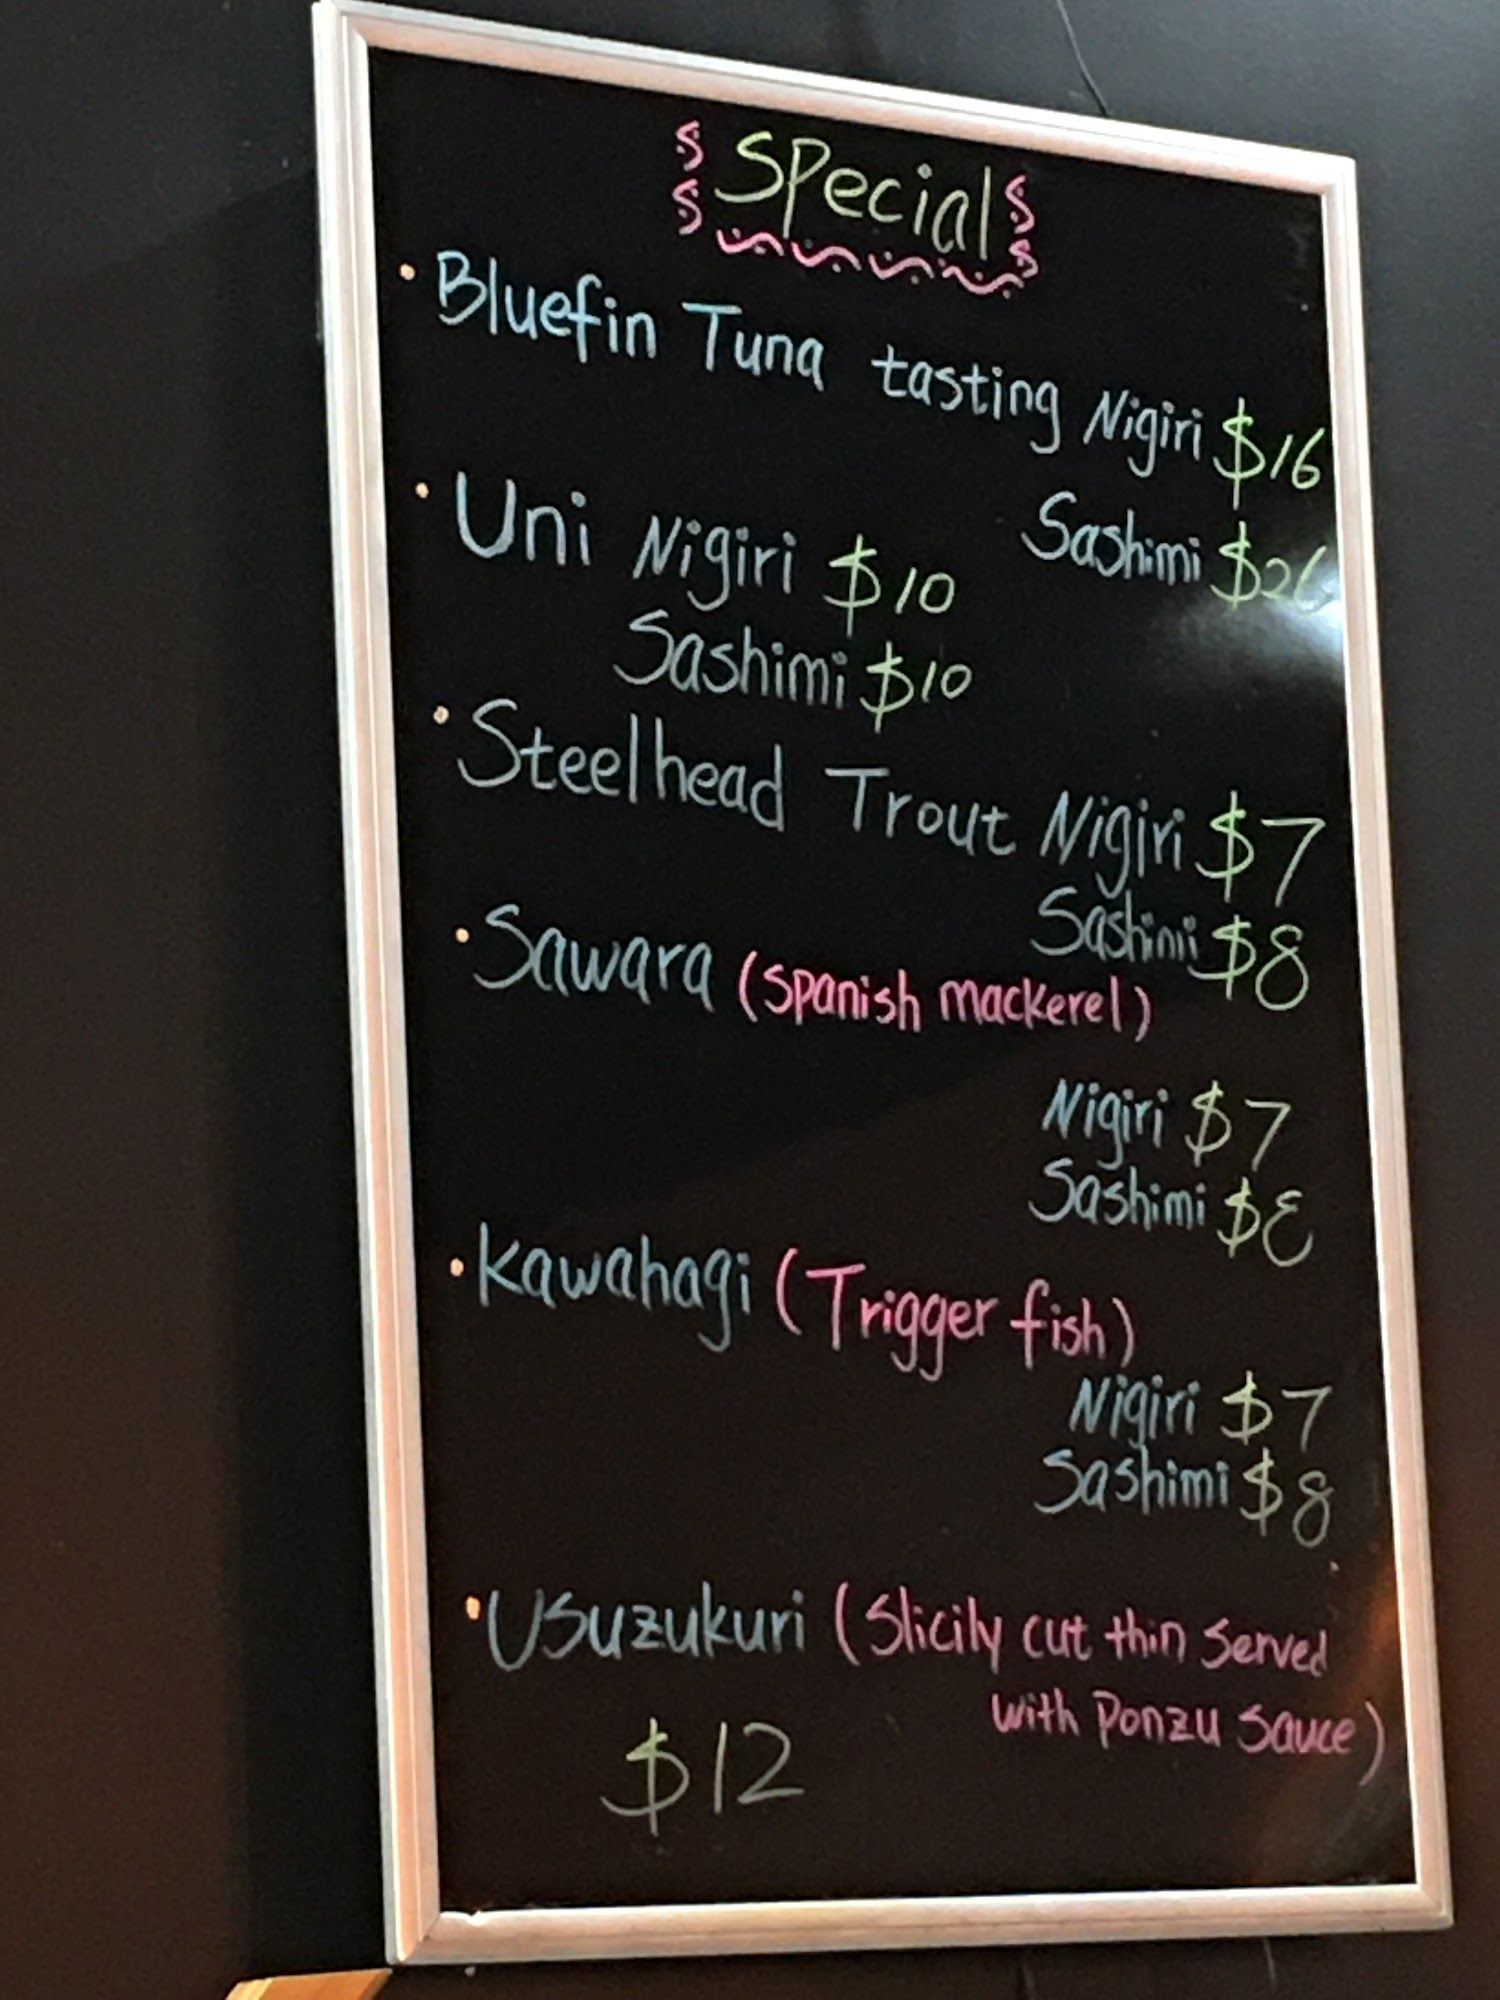 Special
• Bluefin Tuna tasting Nigiri $16
Sashimi $26
• Uni Nigiri $10
Sashimi $10
• Steelhead Trout Nigiri $7
Sashimi $8
• Sawara (Spanish mackerel)
Nigiri $7
Sashimi $8
• Kawahagi (Trigger fish)
Nigiri $7
Sashimi $8
• Usuzukuri (Slicily cut thin served
with Ponzu Sauce)
$12